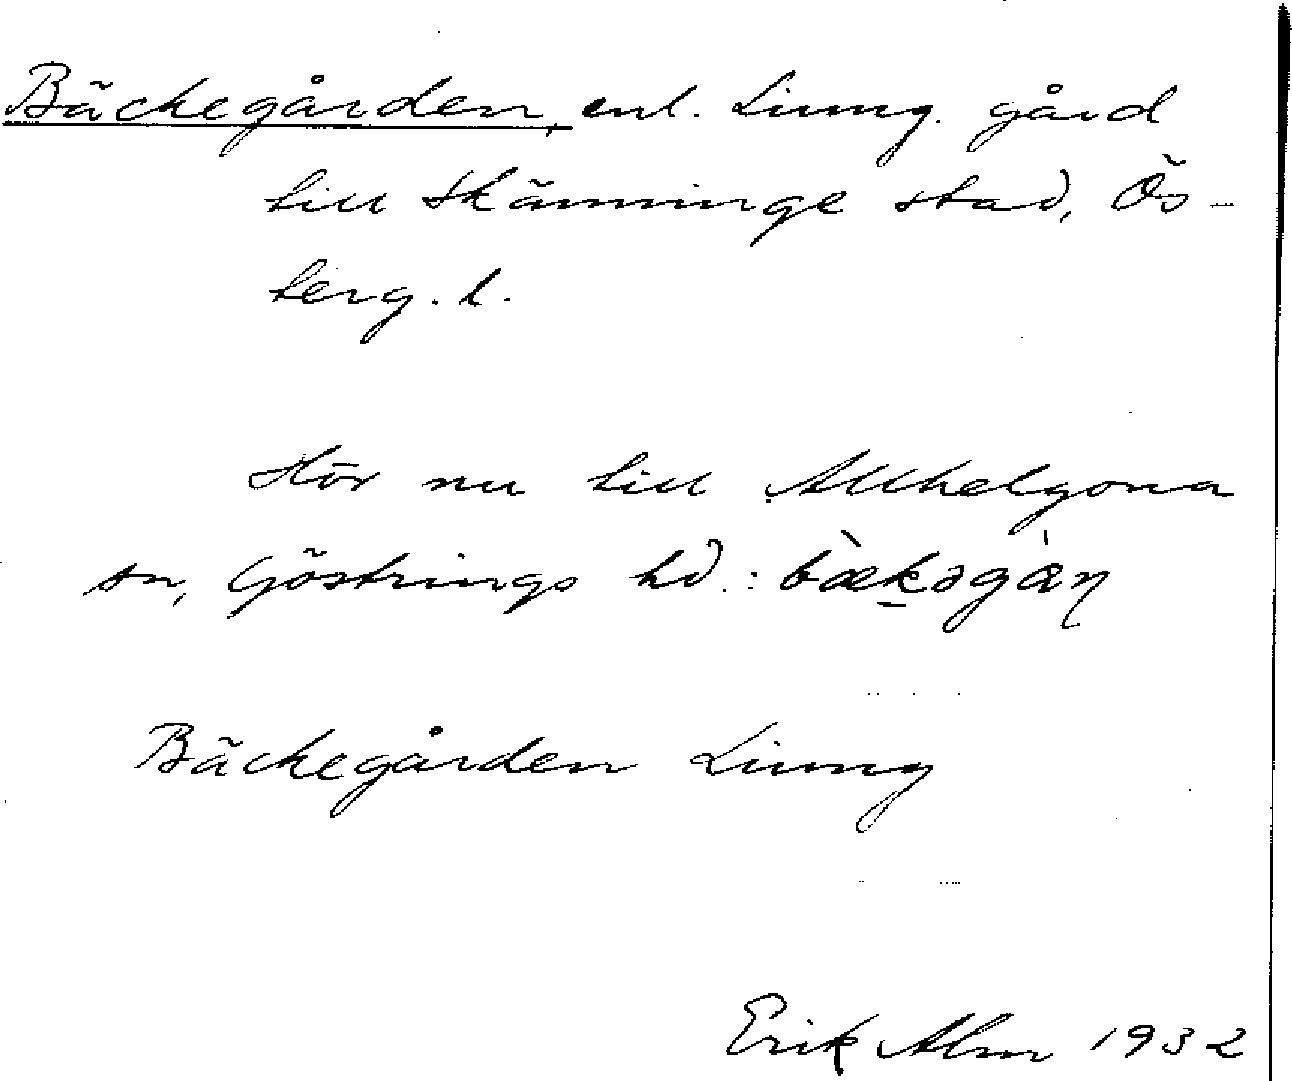 Bäckegården, enl. Liung. gård
till Skänninge stad, Ös-
terg. l.
Hör nu till Allhelgona
sn, Göstrings hd.: bæ̀kəgàṇ
Bäckegården Liung
Erik Alm 1932